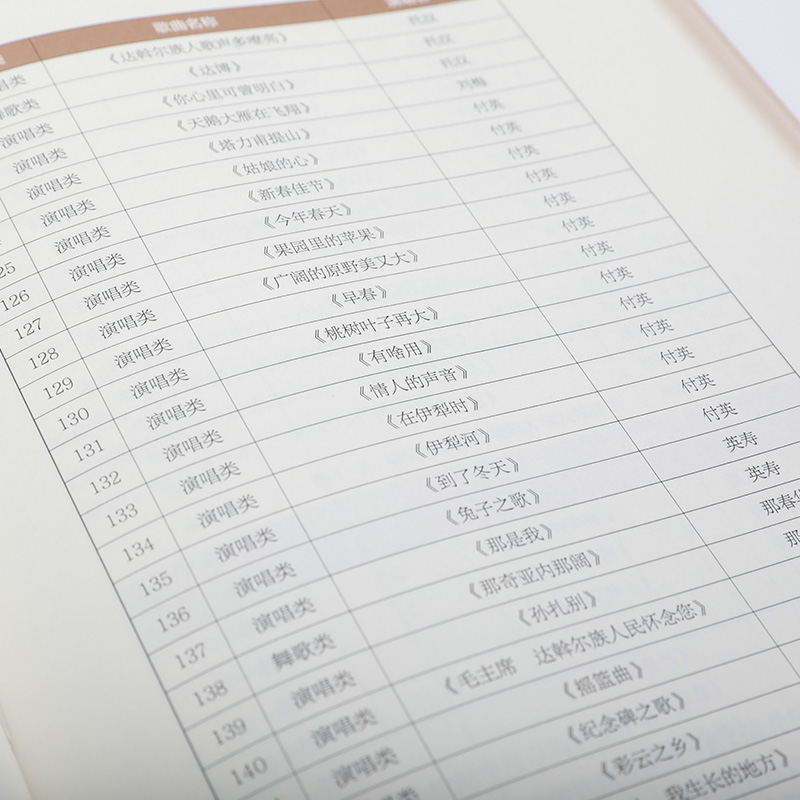 歌曲名称
唱类 《达斡尔族人歌声多嘹亮》
舞歌类 《达博》
演唱类 《你心里可曾明白》
演唱类 《天鹅大雁在飞翔》 刘梅
演唱类 《塔力甫提山》 付英
演唱类 《姑娘的心》 付英
25 演唱类 《新春佳节》 付英
126 演唱类 《今年春天》 付英
127 演唱类 《果园里的苹果》 付英
128 演唱类 《广阔的原野美又大》 付英
129 演唱类 《早春》 付英
130 演唱类 《桃树叶子再大》 付英
131 演唱类 《有啥用》 付英
132 演唱类 《情人的声音》 付英
133 演唱类 《在伊犁时》 付英
134 演唱类 《伊犁河》 付英
135 演唱类 《到了冬天》 付英
136 演唱类 《兔子之歌》 英寿
137 演唱类 《那是我》 英寿
138 舞歌类 《那奇亚内那阔》 那春
139 演唱类 《孙扎别》 那
140 演唱类 《毛主席 达斡尔族人民怀念您》
演唱类 《摇篮曲》
《纪念碑之歌》
《彩云之乡》
我生长的地方》